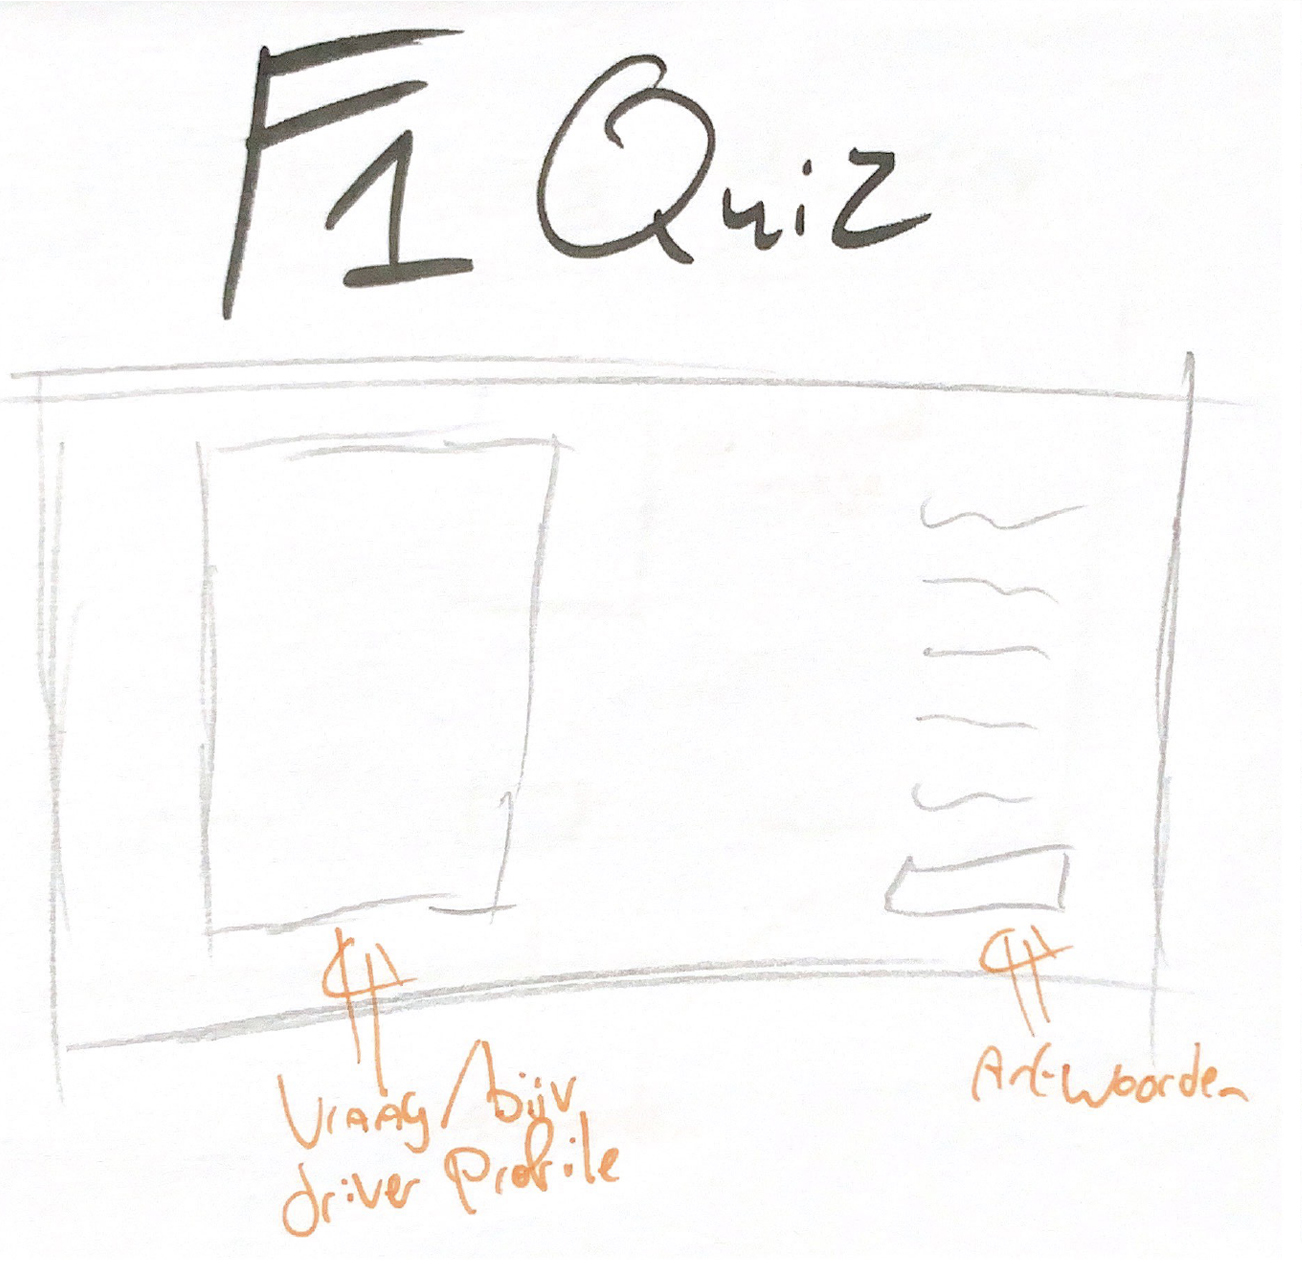 F1 Quiz
Vraag/bijv
driver Profile
Antwoorden